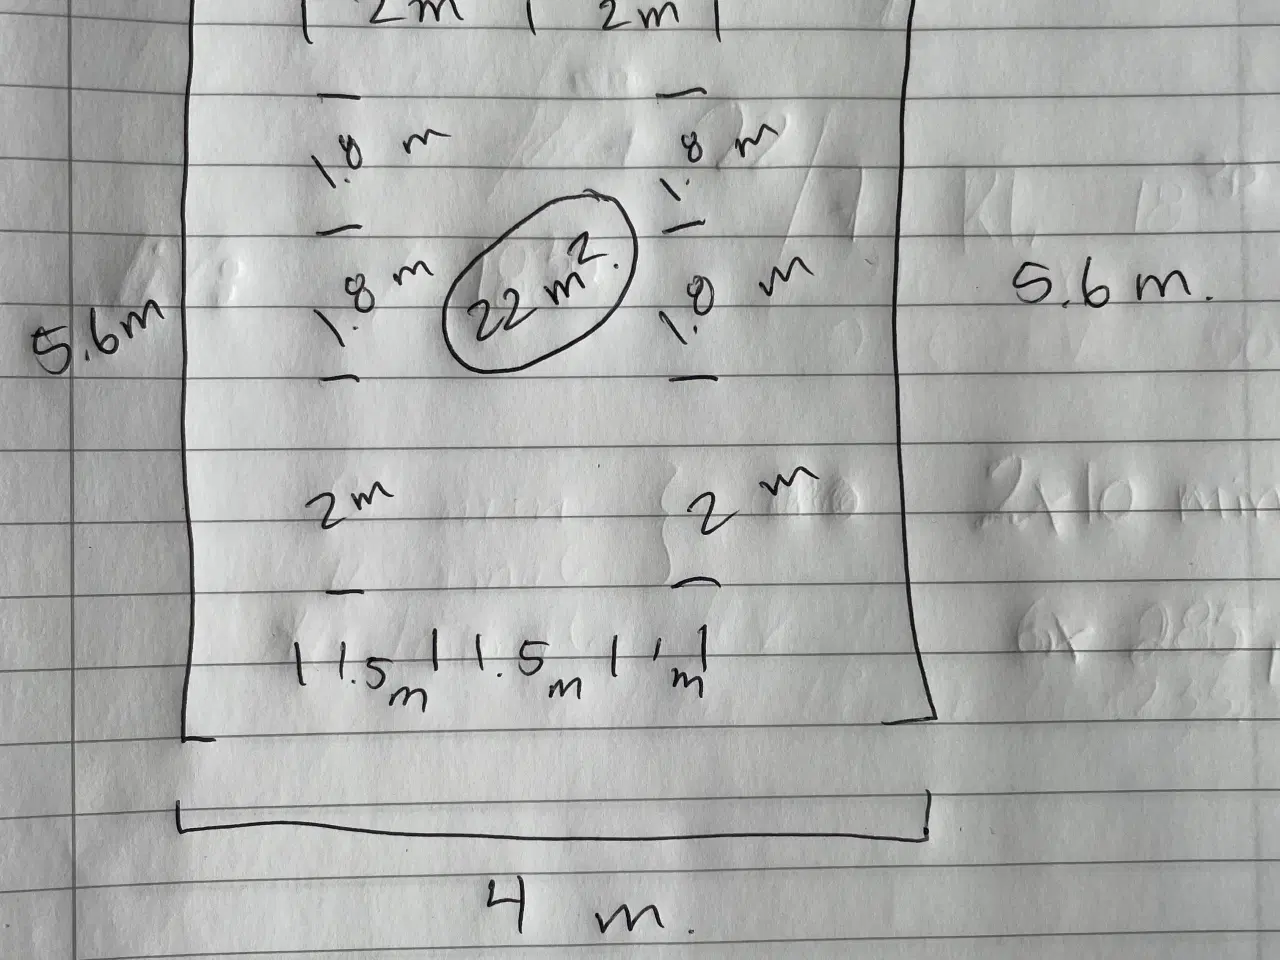 2m 2m
1.8 m 1.8 m
1.8 m 22 m². 1.8 m
5.6m 5.6 m.
2m 2 m
1.5m 1.5m 1m
4 m.
2x10 min
6x